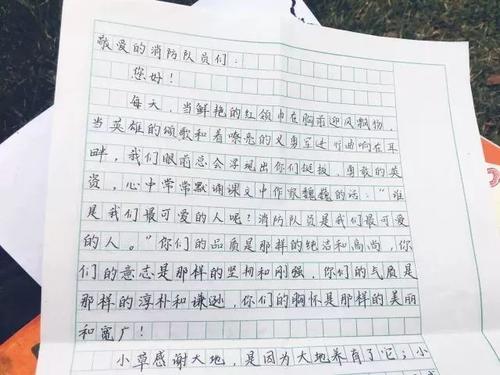 敬爱的消防队员们：
您好！
每天，当鲜艳的红领巾在胸前迎风飘扬，
当英雄的颂歌和着嘹亮的义勇军进行曲响在耳
畔，我们眼前总会浮现出你们挺拔、勇敢的英
姿，心中常常默诵课文中作家魏巍的话："谁
是我们最可爱的人呢？消防队员是我们最可爱
的人。"你们的品质是那样的纯洁和高尚，你
们的意志是那样的坚韧和刚强，你们的气质是
那样的淳朴和谦逊，你们的胸怀是那样的美丽
和宽广！
小草感谢大地，是因为大地养育了它；小